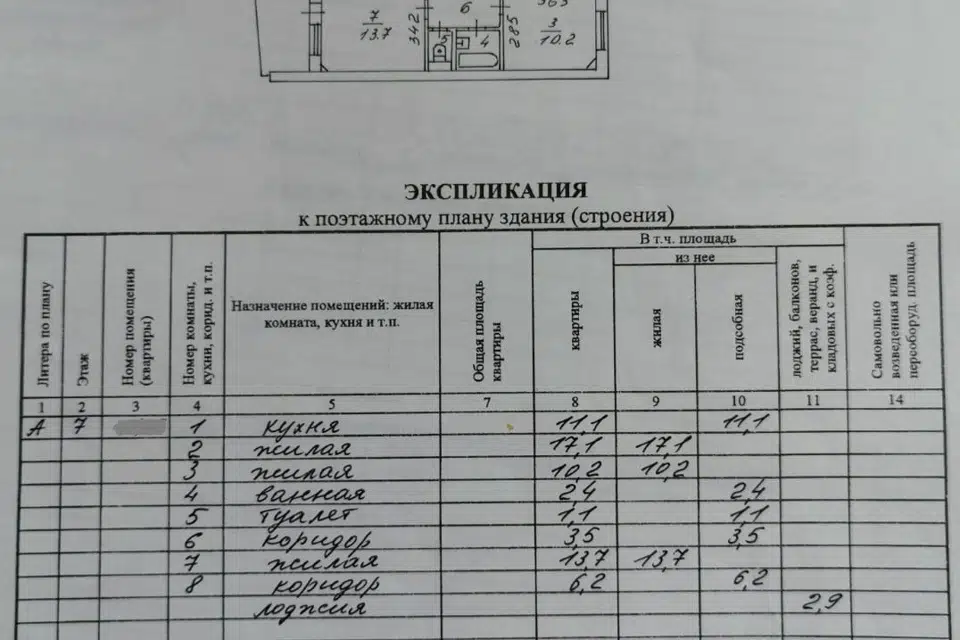 7
13.7
342
6
5
4
285
3
10.2
ЭКСПЛИКАЦИЯ
к поэтажному плану здания (строения)
Литера по плану
Этаж
Номер помещения (квартиры)
Номер комнаты, кухни, корид. и т.п.
Назначение помещений: жилая
комната, кухня и т.п.
Общая площадь квартиры
В т.ч. площадь
из нее
квартиры
жилая
подсобная
лоджий, балконов, террас, веранд, и кладовых с коэф.
Самовольно возведенная или переоборуд. площадь
1 2 3 4 5 7 8 9 10 11 14
А 7 1 кухня 11,1 11,1
2 жилая 17,1 17,1
3 жилая 10,2 10,2
4 ванная 2,4 2,4
5 туалет 1,1 1,1
6 коридор 3,5 3,5
7 жилая 13,7 13,7
8 коридор 6,2 6,2
лоджия 2,9